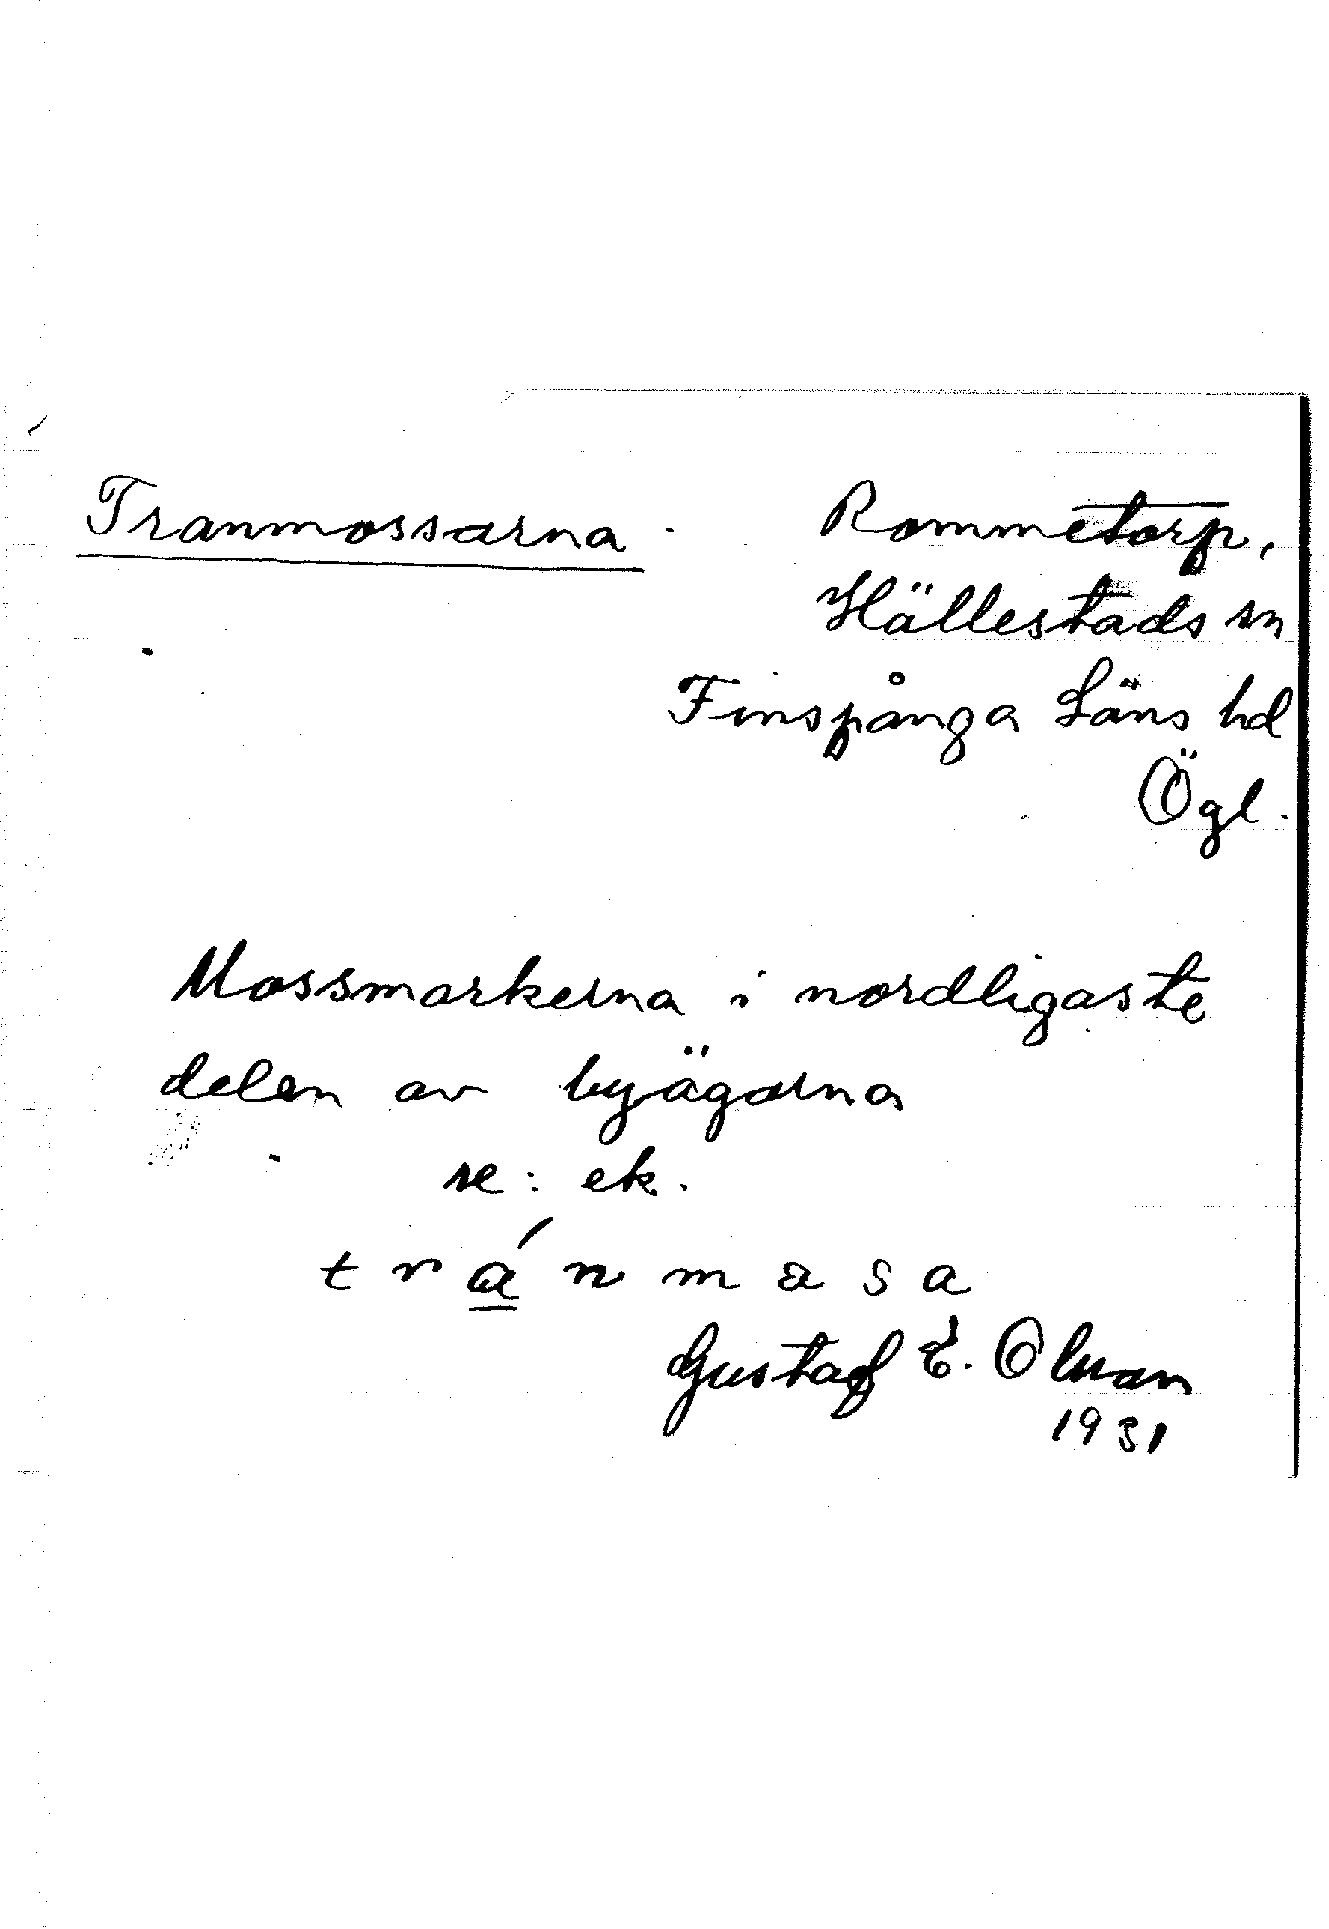 Tranmossarna. Rommetorp,
Hällestads sn
Finspånga Läns hd
Ögl.
Mossmarkerna i nordligaste
delen av byägorna
se: ek.
tránmasa
Gustaf E. Olman
1931